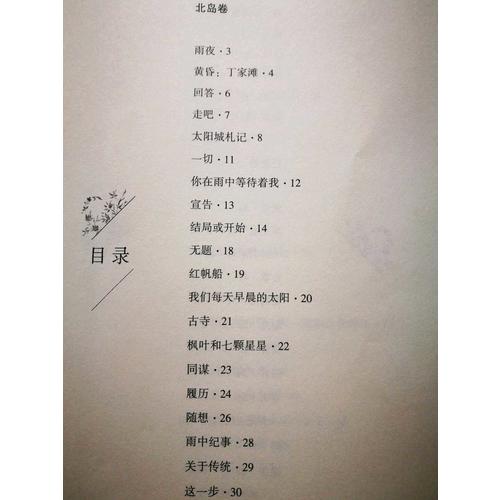 北岛卷
雨夜·3
黄昏：丁家滩·4
回答·6
走吧·7
太阳城札记·8
一切·11
你在雨中等待着我·12
宣告·13
结局或开始·14
无题·18
红帆船·19
我们每天早晨的太阳·20
古寺·21
枫叶和七颗星星·22
同谋·23
履历·24
随想·26
雨中纪事·28
关于传统·29
这一步·30
目录